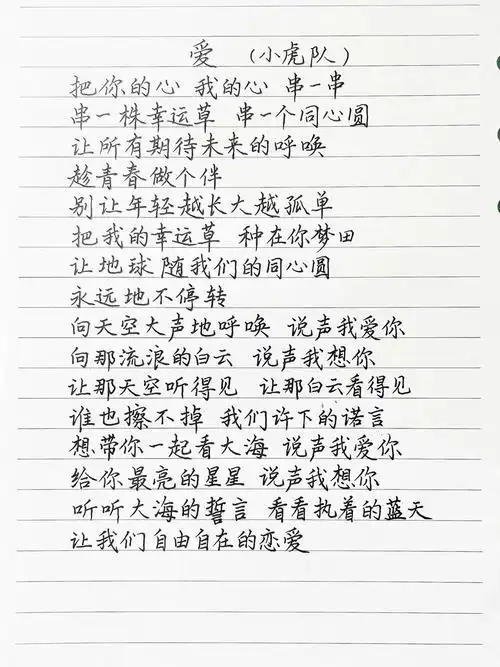 爱 （小虎队）
把你的心 我的心 串一串
串一株幸运草 串一个同心圆
让所有期待未来的呼唤
趁青春做个伴
别让年轻越长大越孤单
把我的幸运草 种在你梦田
让地球随我们的同心圆
永远地不停转
向天空大声地呼唤 说声我爱你
向那流浪的白云 说声我想你
让那天空听得见 让那白云看得见
谁也擦不掉 我们许下的诺言
想带你一起看大海 说声我爱你
给你最亮的星星 说声我想你
听听大海的誓言 看看执着的蓝天
让我们自由自在的恋爱